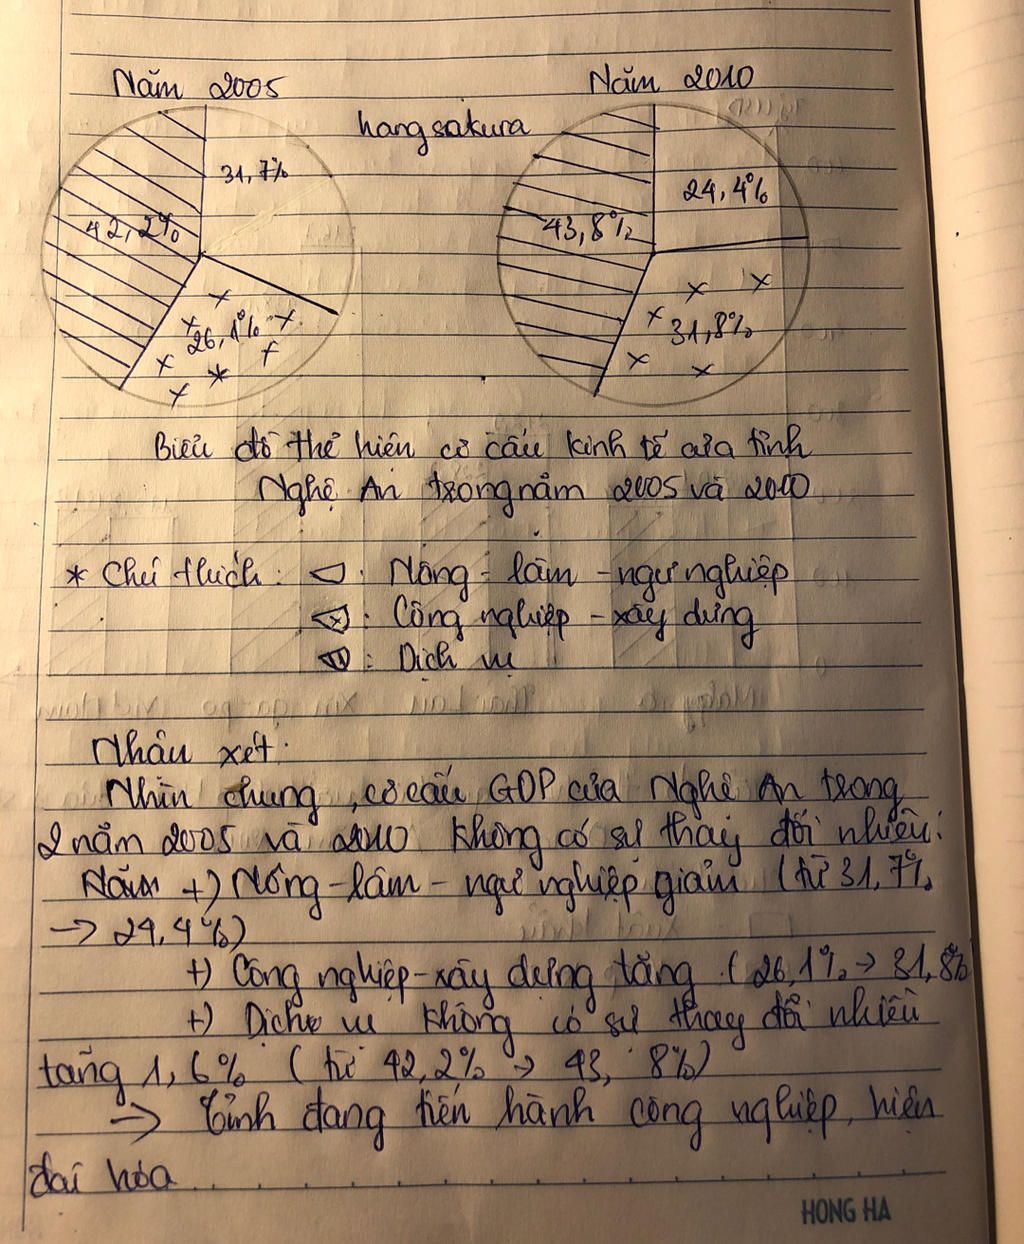 Năm 2005
Năm 2010
hangsakura
31,7%
42,2%
26,1%
24,4%
43,8%
31,8%
Biểu đồ thể hiện cơ cấu kinh tế của tỉnh
Nghệ An trong năm 2005 và 2010
* Chú thích: : Nông - lâm - ngư nghiệp
: Công nghiệp - xây dựng
: Dịch vụ
Nhâu xét:
Nhìn chung, cơ cấu GDP của Nghệ An trong
2 năm 2005 và 2010 không có sự thay đổi nhiều:
Năm +) Nông - lâm - ngư nghiệp giảm (từ 31,7%
→ 24,4%)
+) Công nghiệp - xây dựng tăng (26,1% → 31,8%
+) Dịch vụ không có sự thay đổi nhiều
tăng 1,6% (từ 42,2% → 43,8%)
→ Tỉnh đang tiến hành công nghiệp, hiện
đại hóa
HONG HA